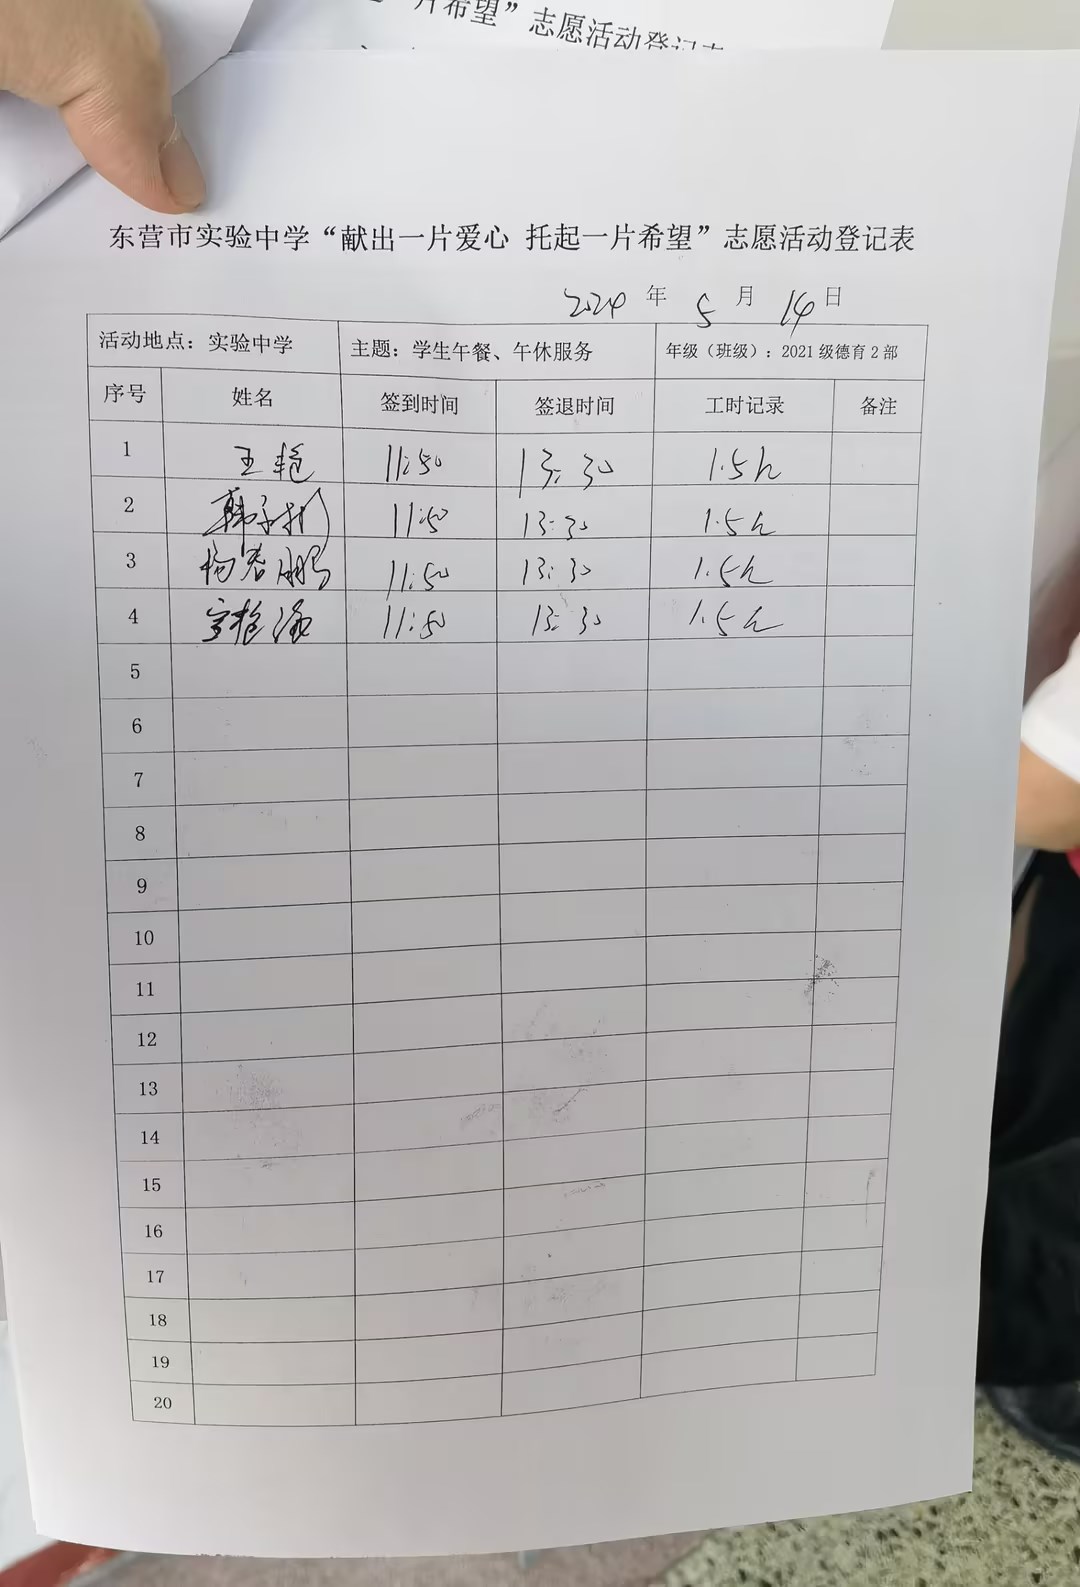 片希望”志愿活动登记表
东营市实验中学“献出一片爱心 托起一片希望”志愿活动登记表
2024 年 5 月 14 日
活动地点：实验中学 主题：学生午餐、午休服务 年级（班级）：2021 级德育 2 部
序号 姓名 签到时间 签退时间 工时记录 备注
1 王艳 11:50 13:30 1.5h
2 11:50 13:30 1.5h
3 杨春鹏 11:50 13:30 1.5h
4 11:50 13:30 1.5h
5
6
7
8
9
10
11
12
13
14
15
16
17
18
19
20